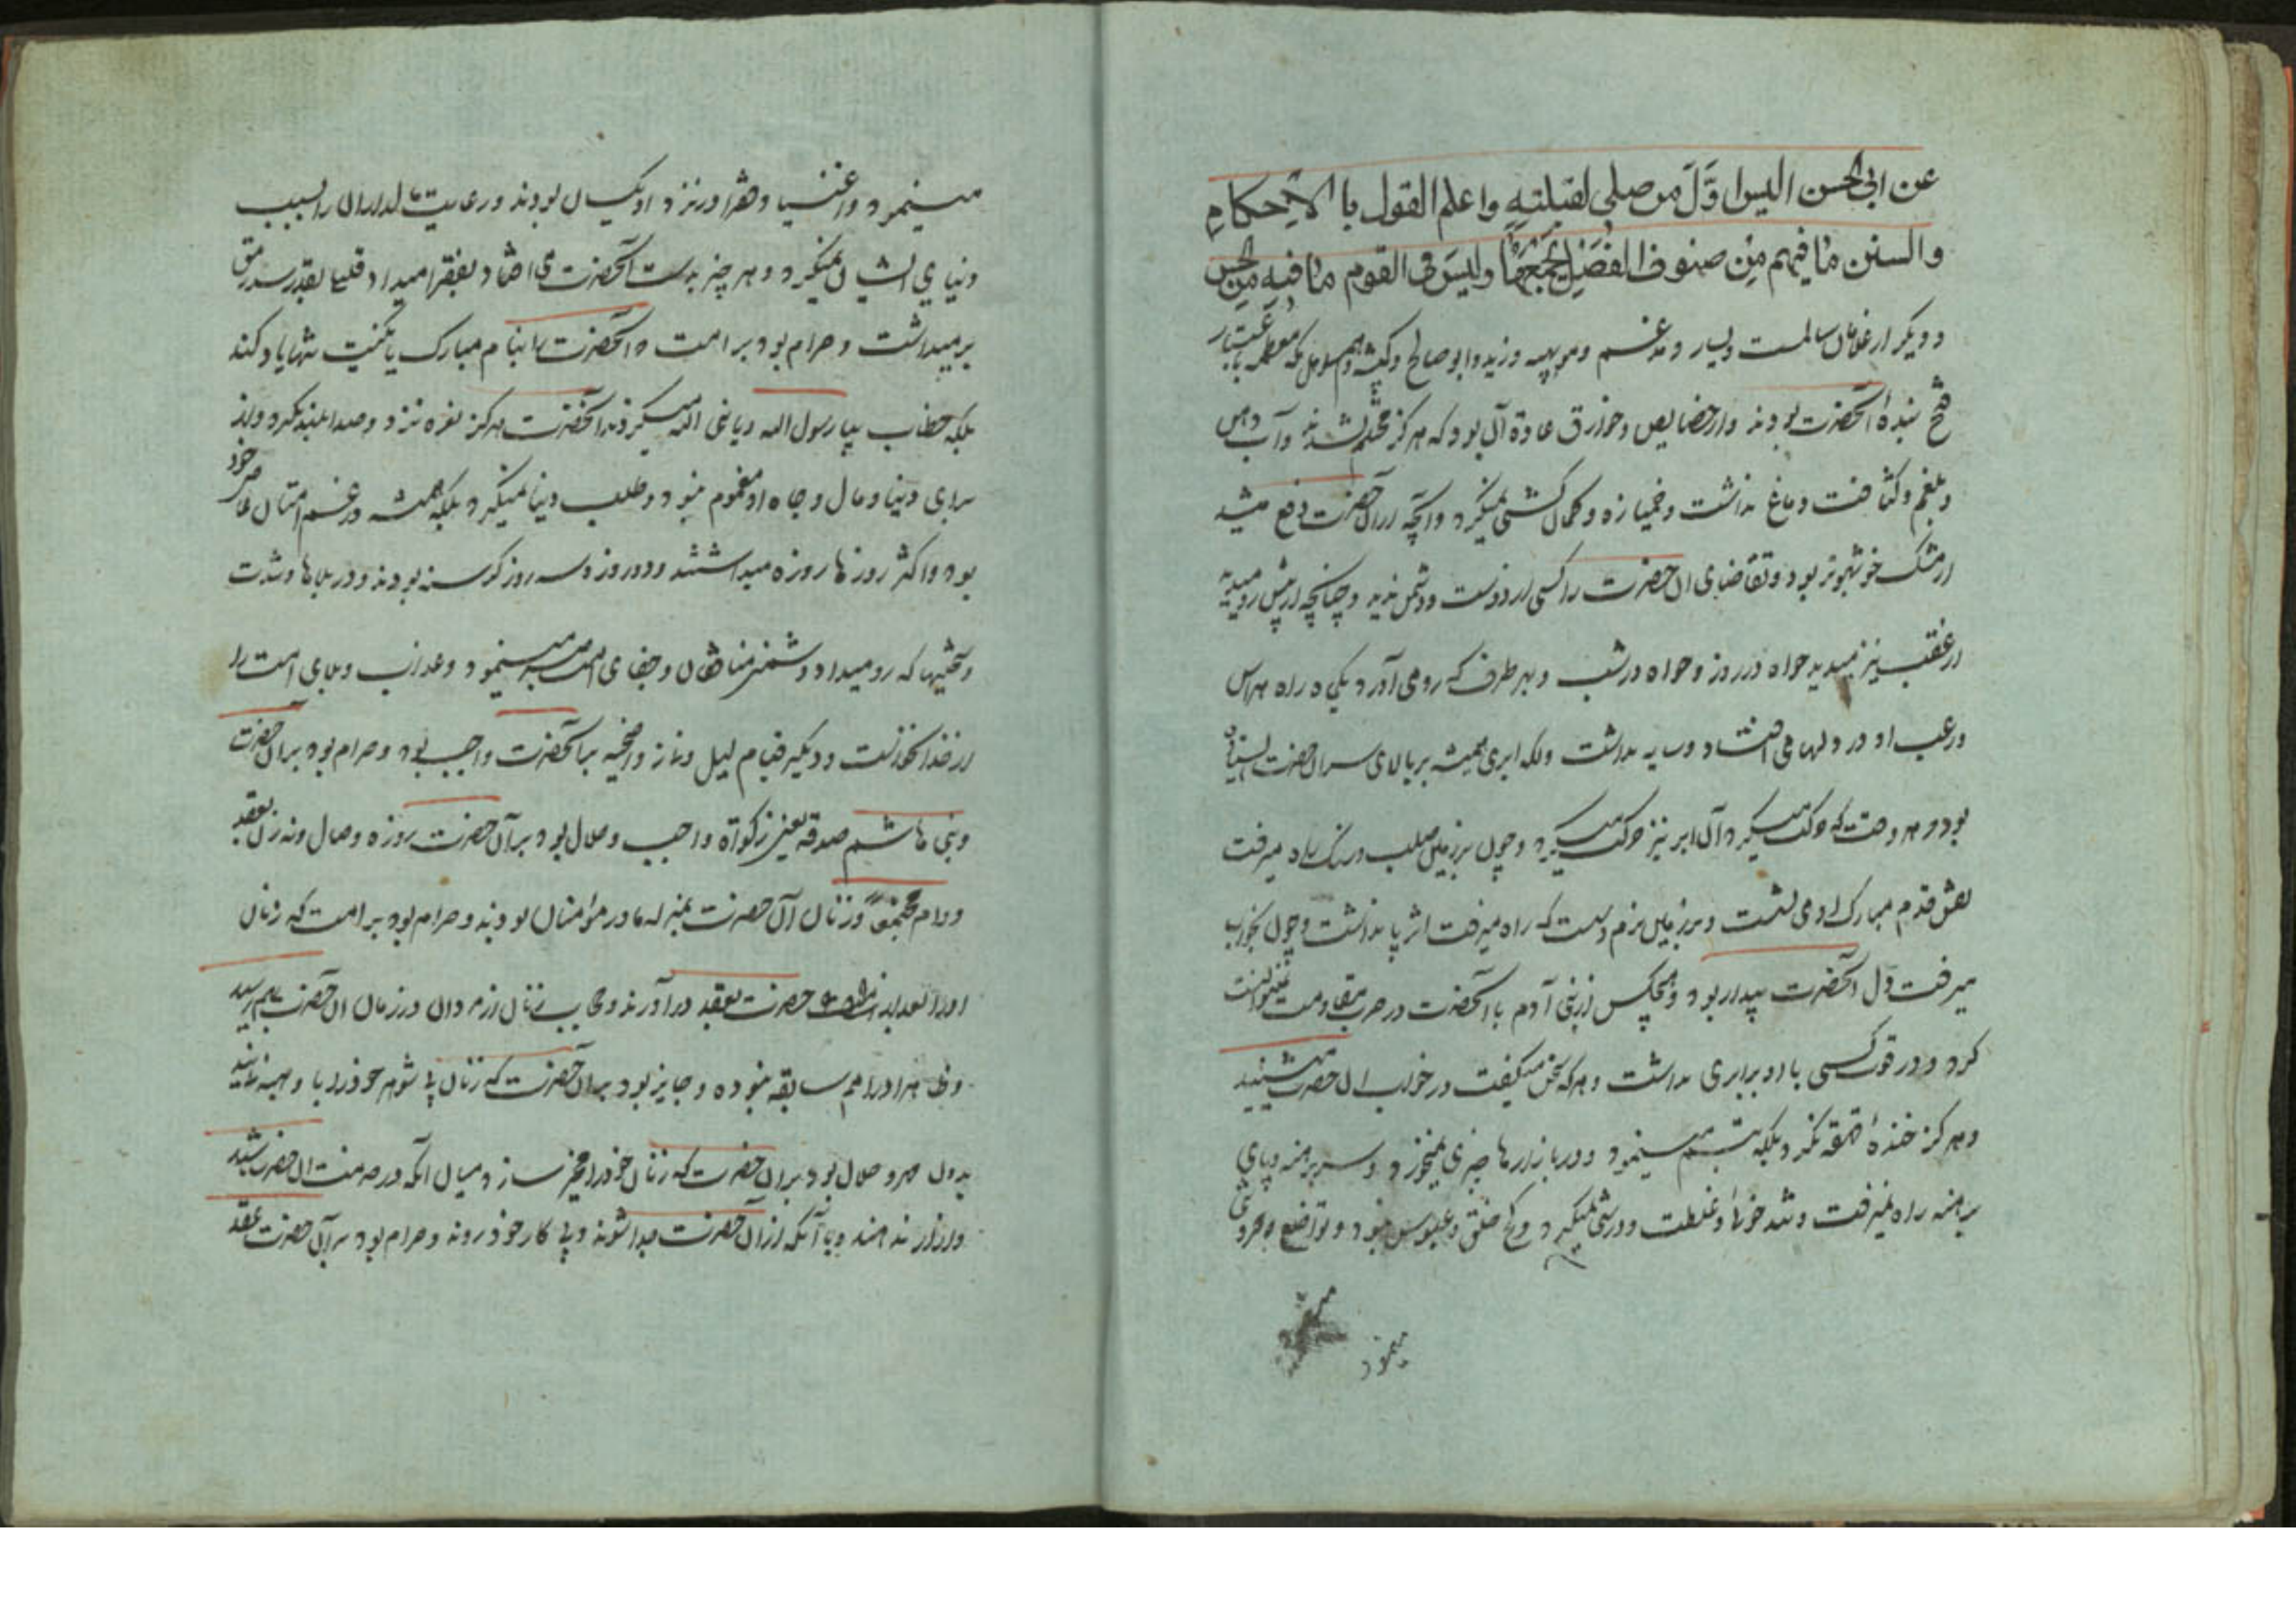 عن ابی الحسن الیس اوّل من صلی لقبلته واعلم القول با الاحکام
والسنن ما فیهم من صنوف الفضل یجمعها ولیس فی القوم ما فیه من الحسن
و دیگر از غلامان سالمست ویسار و مدغم ومویهبه وزید وابو صالح
بنده آنحضرت بودند واز خصایص وخوارق عادة آن بود که هرکز محتلم نشدند وآب دهن
وبلغم وکثافت دماغ نداشت وخمیازه وکمان کشی نمیکرد وآنچه ازان حضرت دفع میشد
از مشک خوشبوتر بود وتقاضای ان حضرت را کسی از دوست ودشمن ندید وچنانچه از پیش رو میدید
از عقب نیز میدید خواه در روز وخواه در شب وبهر طرف که رو می آورد یکماه راه هراس
ورعب او در دلها می افتاد وسایه نداشت ولکه ابری همیشه بر بالای سر ان حضرت
بود و هر وقت که حرکت میکرد آن ابر نیز حرکت میکرد وچون بر زمین صلب وسنک راه میرفت
نقش قدم مبارک او می نشست وبر زمین نرم که راه میرفت اثر پا نداشت وچون بخواب
میرفت دل آنحضرت بیدار بود وهیچکس از بنی آدم با آنحضرت در حرب مقاومت نمیتوانست
کرد ودر قوت کسی با او برابری نداشت وهرکه سخن میکفت در خواب ان حضرت میشنید
وهرکز خندهٔ قهقه نکرد بلکه تبسم مینمود ودر بازارها چیزی نمیخورد وسر برهنه وپای
برهنه راه نمیرفت وتند خو وغلظت ودرشتی نمیکرد وکج خلق وعبوس نبود وتواضع وفروتنی
مینمود
مینمود واغنیا وفقرا در نزد او یکسان بودند ورعایت مالداران را بسبب
دنیای ایشان نمیکرد وهر چیز بدست آنحضرت می افتاد بفقرا میداد قلیلی بقدر سد رمق
برمیداشت وحرام بود بر امت که آنحضرت را بنام مبارک یا بکنیت تنها یاد کند
بلکه خطاب بیا رسول الله ویا نبی الله میکردند آنحضرت هرکز نعره نزد وصدا بلند نکرد واز
برای دنیا ومال وجاه او مغموم نبود وطلب دنیا نمیکرد بلکه همیشه در غم امتان عاصی خود
بود واکثر روزها روزه میداشتند ودو روز وسه روز کرسنه بودند ودر بلاها وشدت
وسختیها که رو میداد ودشمنی منافقان وجفای امت صبر مینمود وعذاب وبلای امت را
از خدا نخواست ودیکر قیام لیل ونماز واضحیه بر آنحضرت واجب بود وحرام بود بر ان حضرت
وبنی هاشم صدقه یعنی زکواة واجب وحلال بود بر آن حضرت روزه وصال ونه زن بعقد
دوام وزنان آن حضرت بمنزله مادر مؤمنان بودند وحرام بود بر امت که زنان
او را بعد از حضرت بعقد در آورند وحجاب زنان از مردان در زمان ان حضرت بهم رسید
هرا درامم سابقه نبوده وجایز بود بر ان حضرت که زنان
بدون مهر وحلال بود بر ان حضرت که زنان خود را مخیر سازد میان انکه در خدمت ان حضرت باشند
ویا آنکه از آن حضرت جدا شوند وپی کار خود روند وحرام بود بر آن حضرت عقد